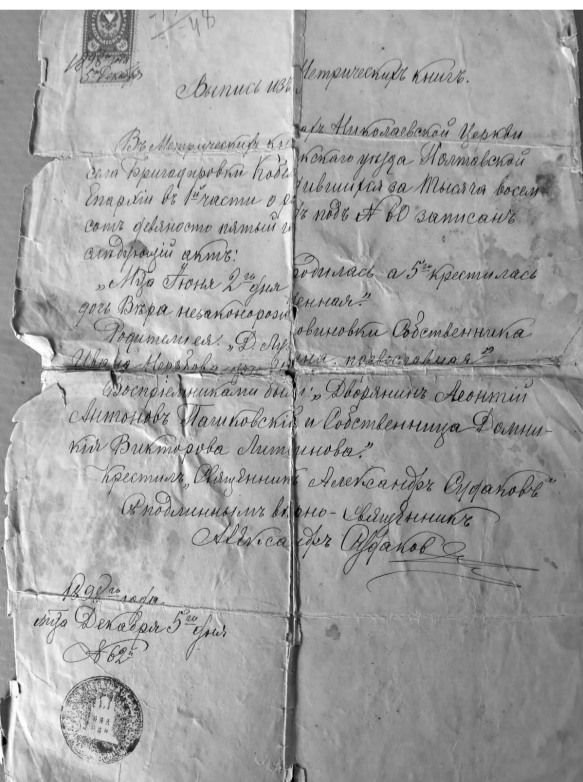 48
5 Декабря
Выпись изъ Метрическихъ книгъ.
Въ Метрической Николаевской Церкви
села Бригадировки уѣзда Полтавской
Епархіи въ 1й части о за тысяча восем
сотъ девяносто пятый подъ № 60 записанъ
слѣдующій актъ:
„М-ца Іюня 2го дня родилась а 5го крестилась
дочь Вѣра незаконорожденная."
Родители ея: „Д. Собственника
Ивана православная"
Воспріемниками были: „Дворянинъ Леонтій
Антоновъ Пашковскій и Собственница Домни-
кія Викторова Литвинова."
Крестилъ „Священникъ Александръ Судаковъ"
Съ подлиннымъ вѣрно - Священникъ
Александръ Судаков
года
м-ца Декабря 5го дня
№ 62